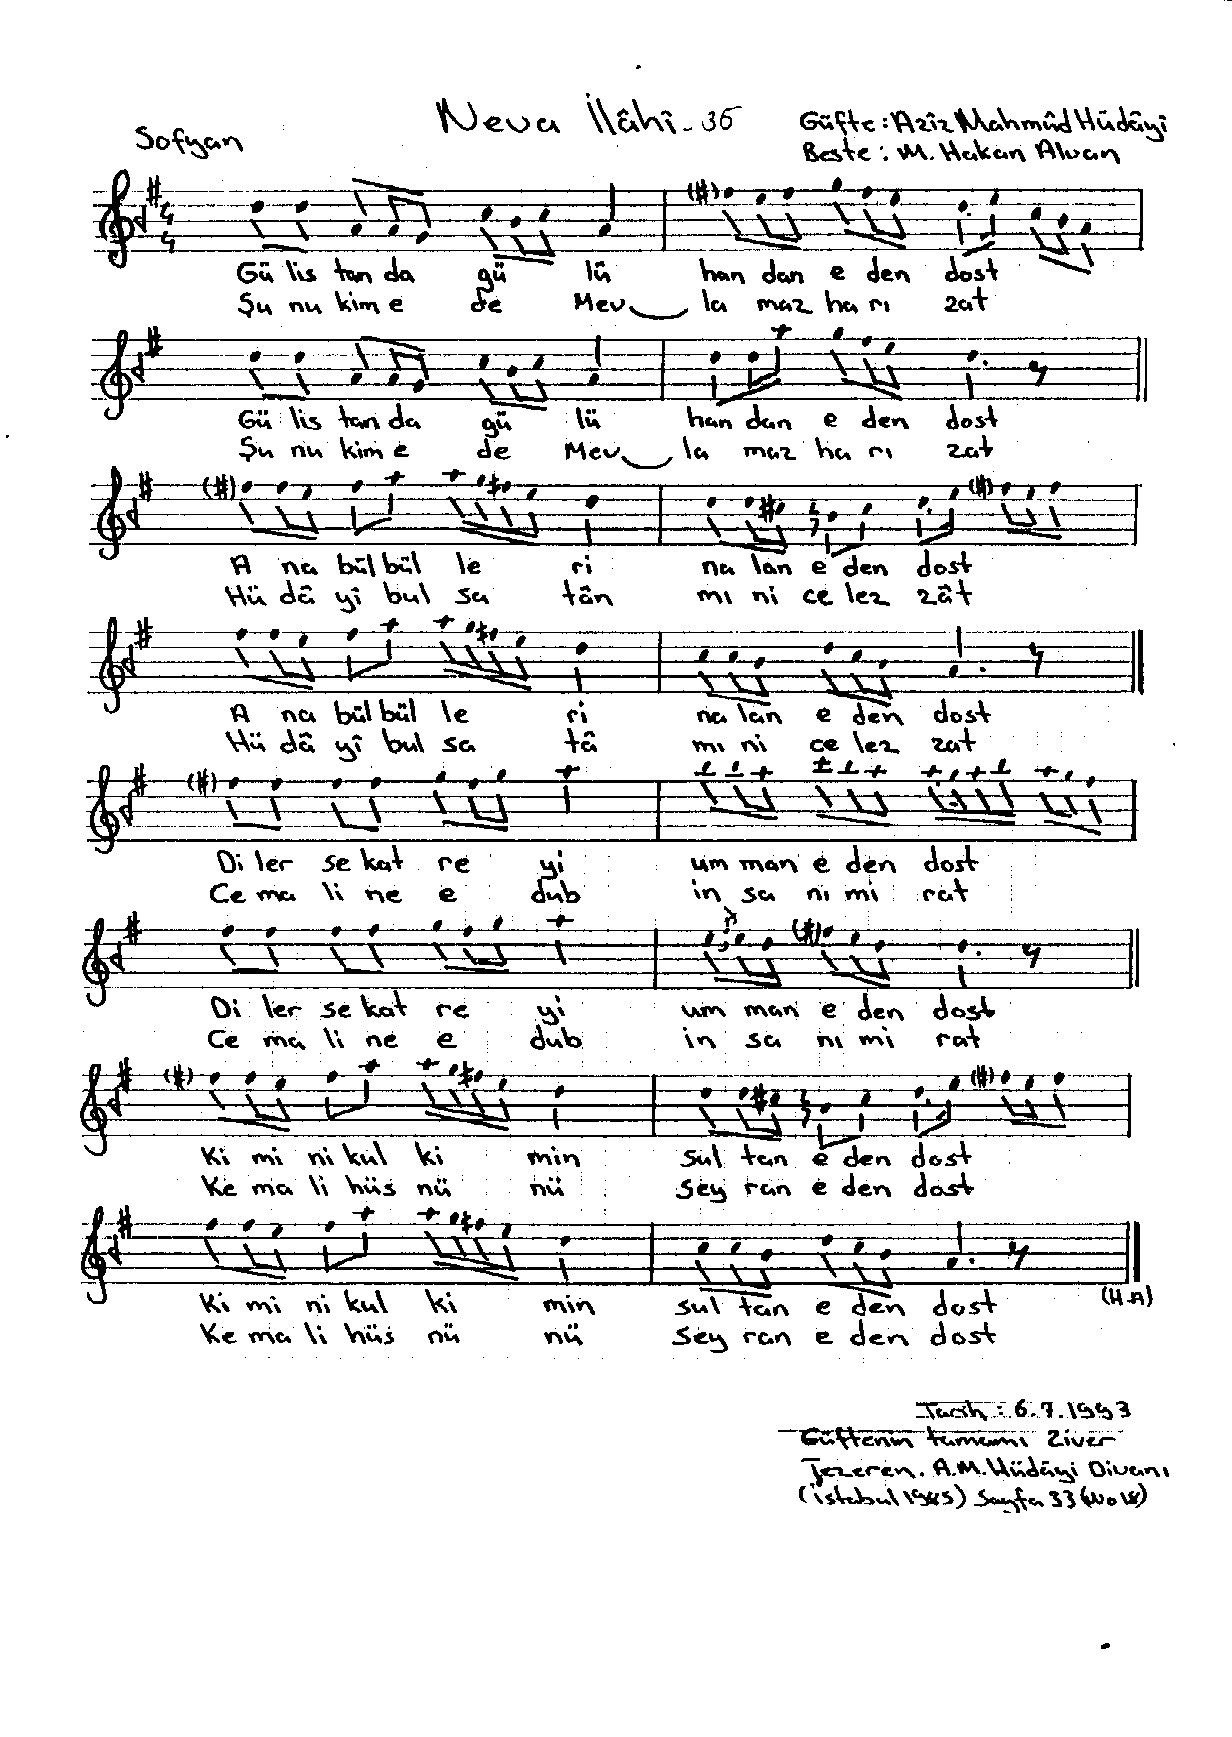 Neva İlâhî - 36
Sofyan
Güfte : Azîz Mahmûd Hüdâyî
Beste : M. Hakan Alvan
Gü lis tan da gü lü han dan e den dost
Şu nu kim e de Mev la maz ha rı zat
Gü lis tan da gü lü han dan e den dost
Şu nu kim e de Mev la maz ha rı zat
A na bül bül le ri na lan e den dost
Hü dâ yî bul sa tân mı ni ce lez zât
A na bül bül le ri na lan e den dost
Hü dâ yî bul sa tâ mı ni ce lez zat
Di ler se kat re yi um man e den dost
Ce ma li ne e dub in sa nı mi rat
Di ler se kat re yi um man e den dost
Ce ma li ne e dub in sa nı mi rat
Ki mi ni kul ki min sul tan e den dost
Ke ma li hüs nü nü sey ran e den dost
Ki mi ni kul ki min sul tan e den dost
(H.A)
Ke ma li hüs nü nü sey ran e den dost
Tarih : 6.7.1993
Güftenin tamamı Ziver
Tezeren. A.M. Hüdâyi Divanı
(İstabul 1985) Sayfa 33